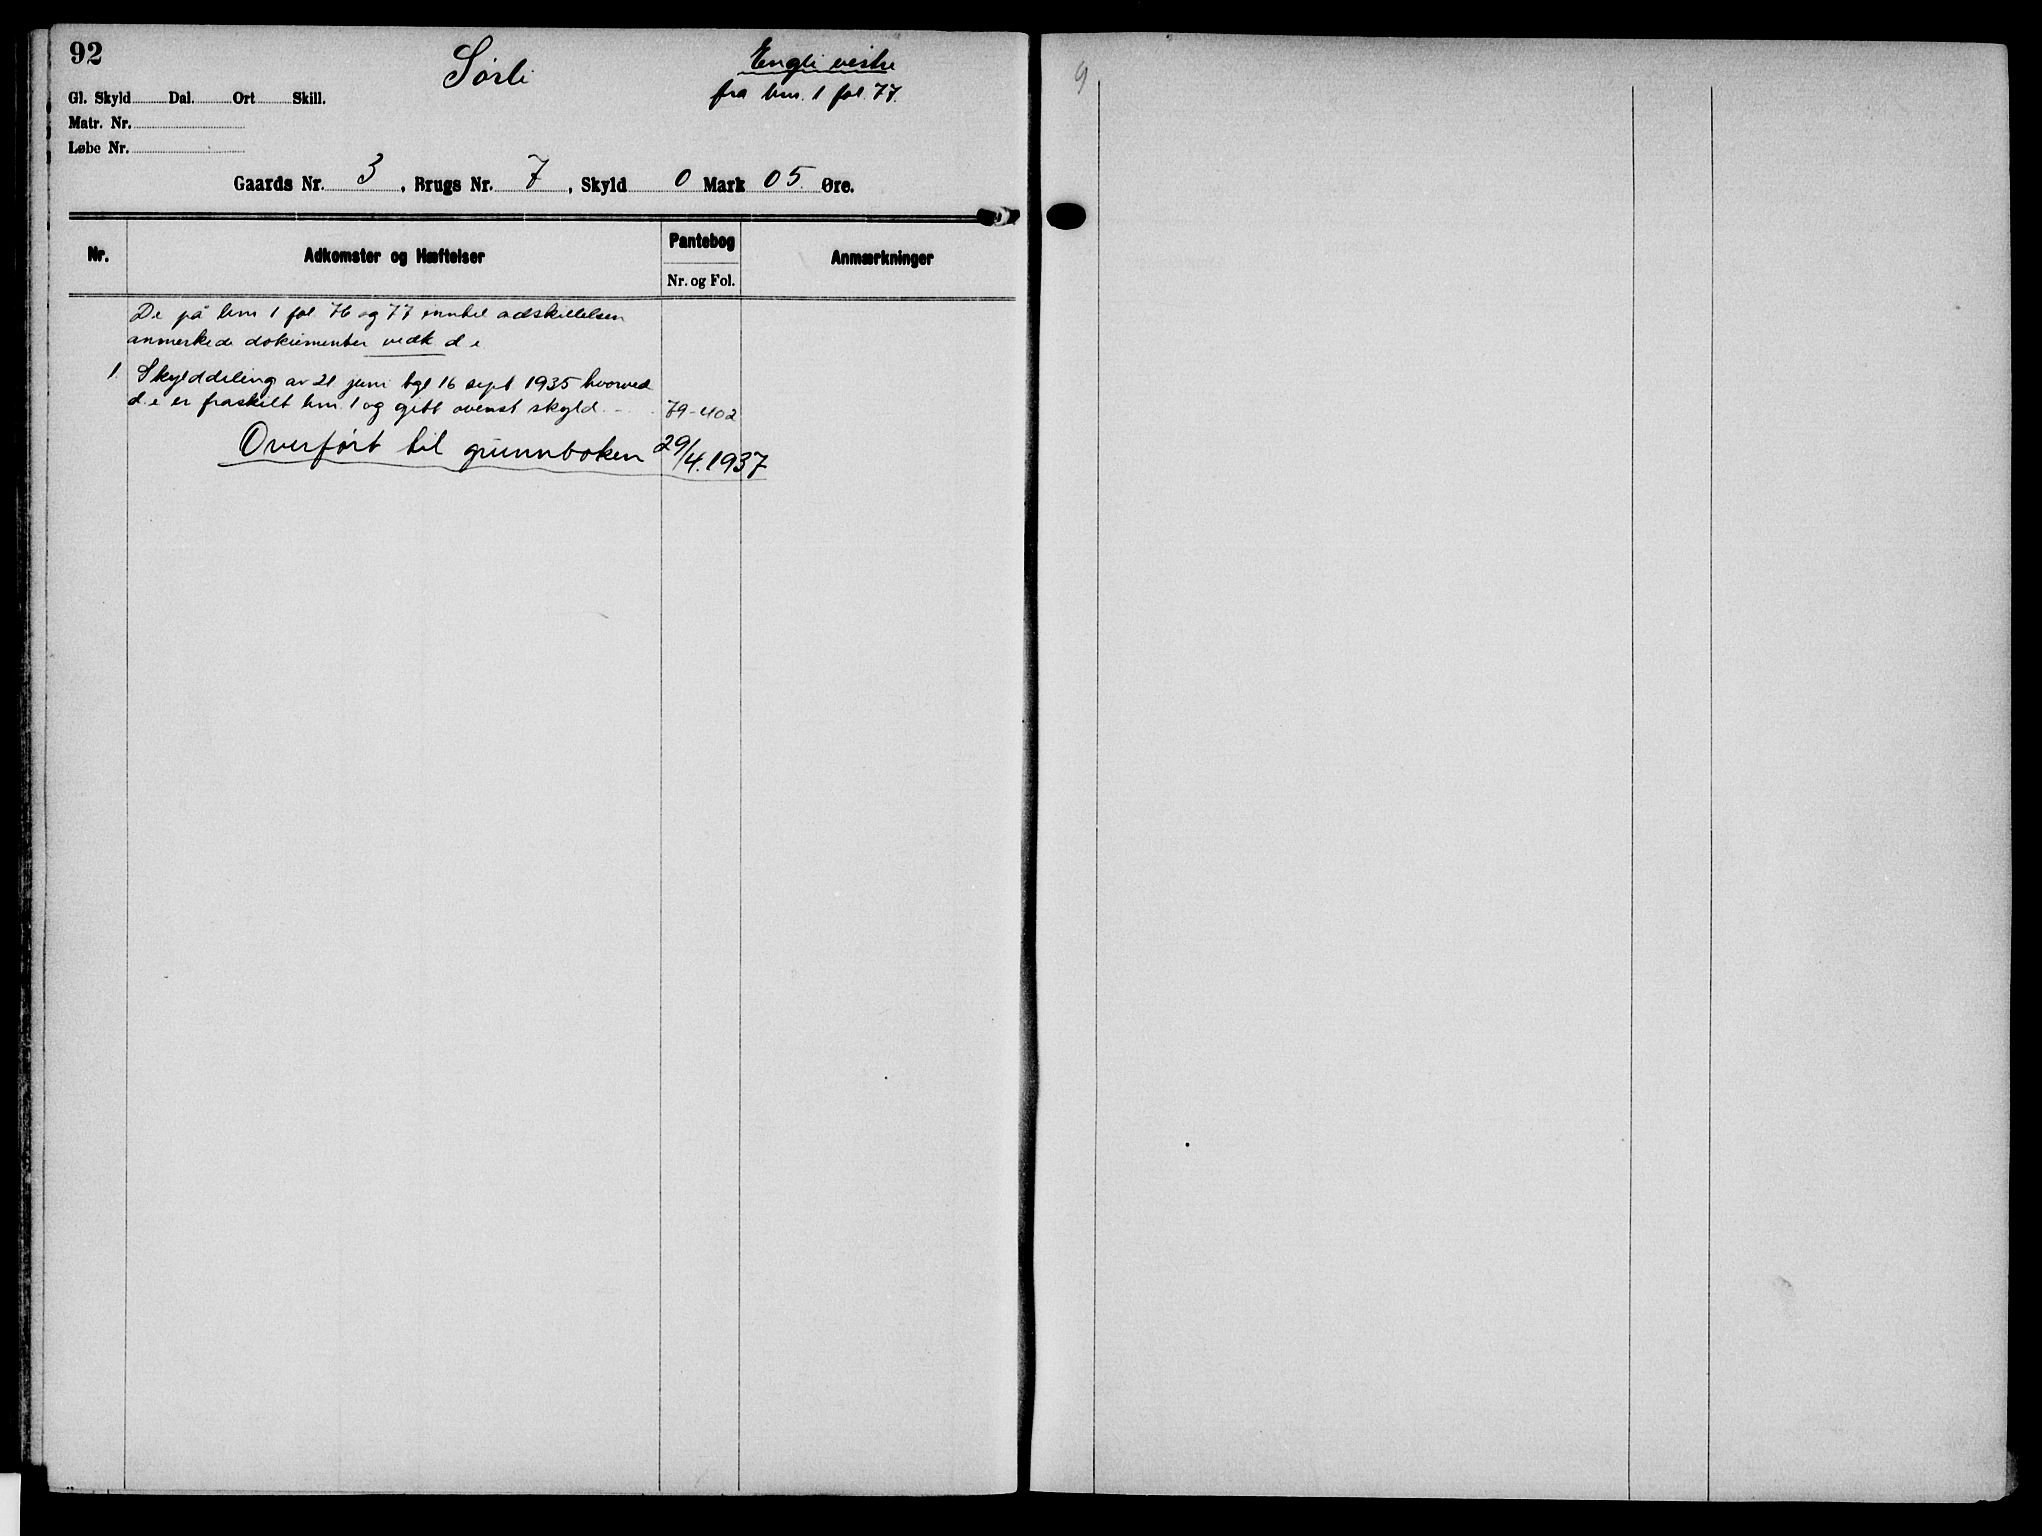 92
Sørli
Engli vestre
fra brn. 1 fol. 77.
Gl. Skyld Dal. Ort Skill.
Matr. Nr.
Løbe Nr.
Gaards Nr. 3, Brugs Nr. 7, Skyld 0 Mark 05 Øre.
Nr. Adkomster og Hæftelser Pantebog Anmærkninger
Nr. og Fol.
De på brn 1 fol 76 og 77 inntil adskillelsen
anmerkede dokumenter vedk d e
1. Skylddeling av 21 juni tgl 16 sept. 1935 hvorved
d. e er fraskilt brn. 1 og gitt ovenst skyld. 79-402
Overført til grunnboken 29/4.1937
9